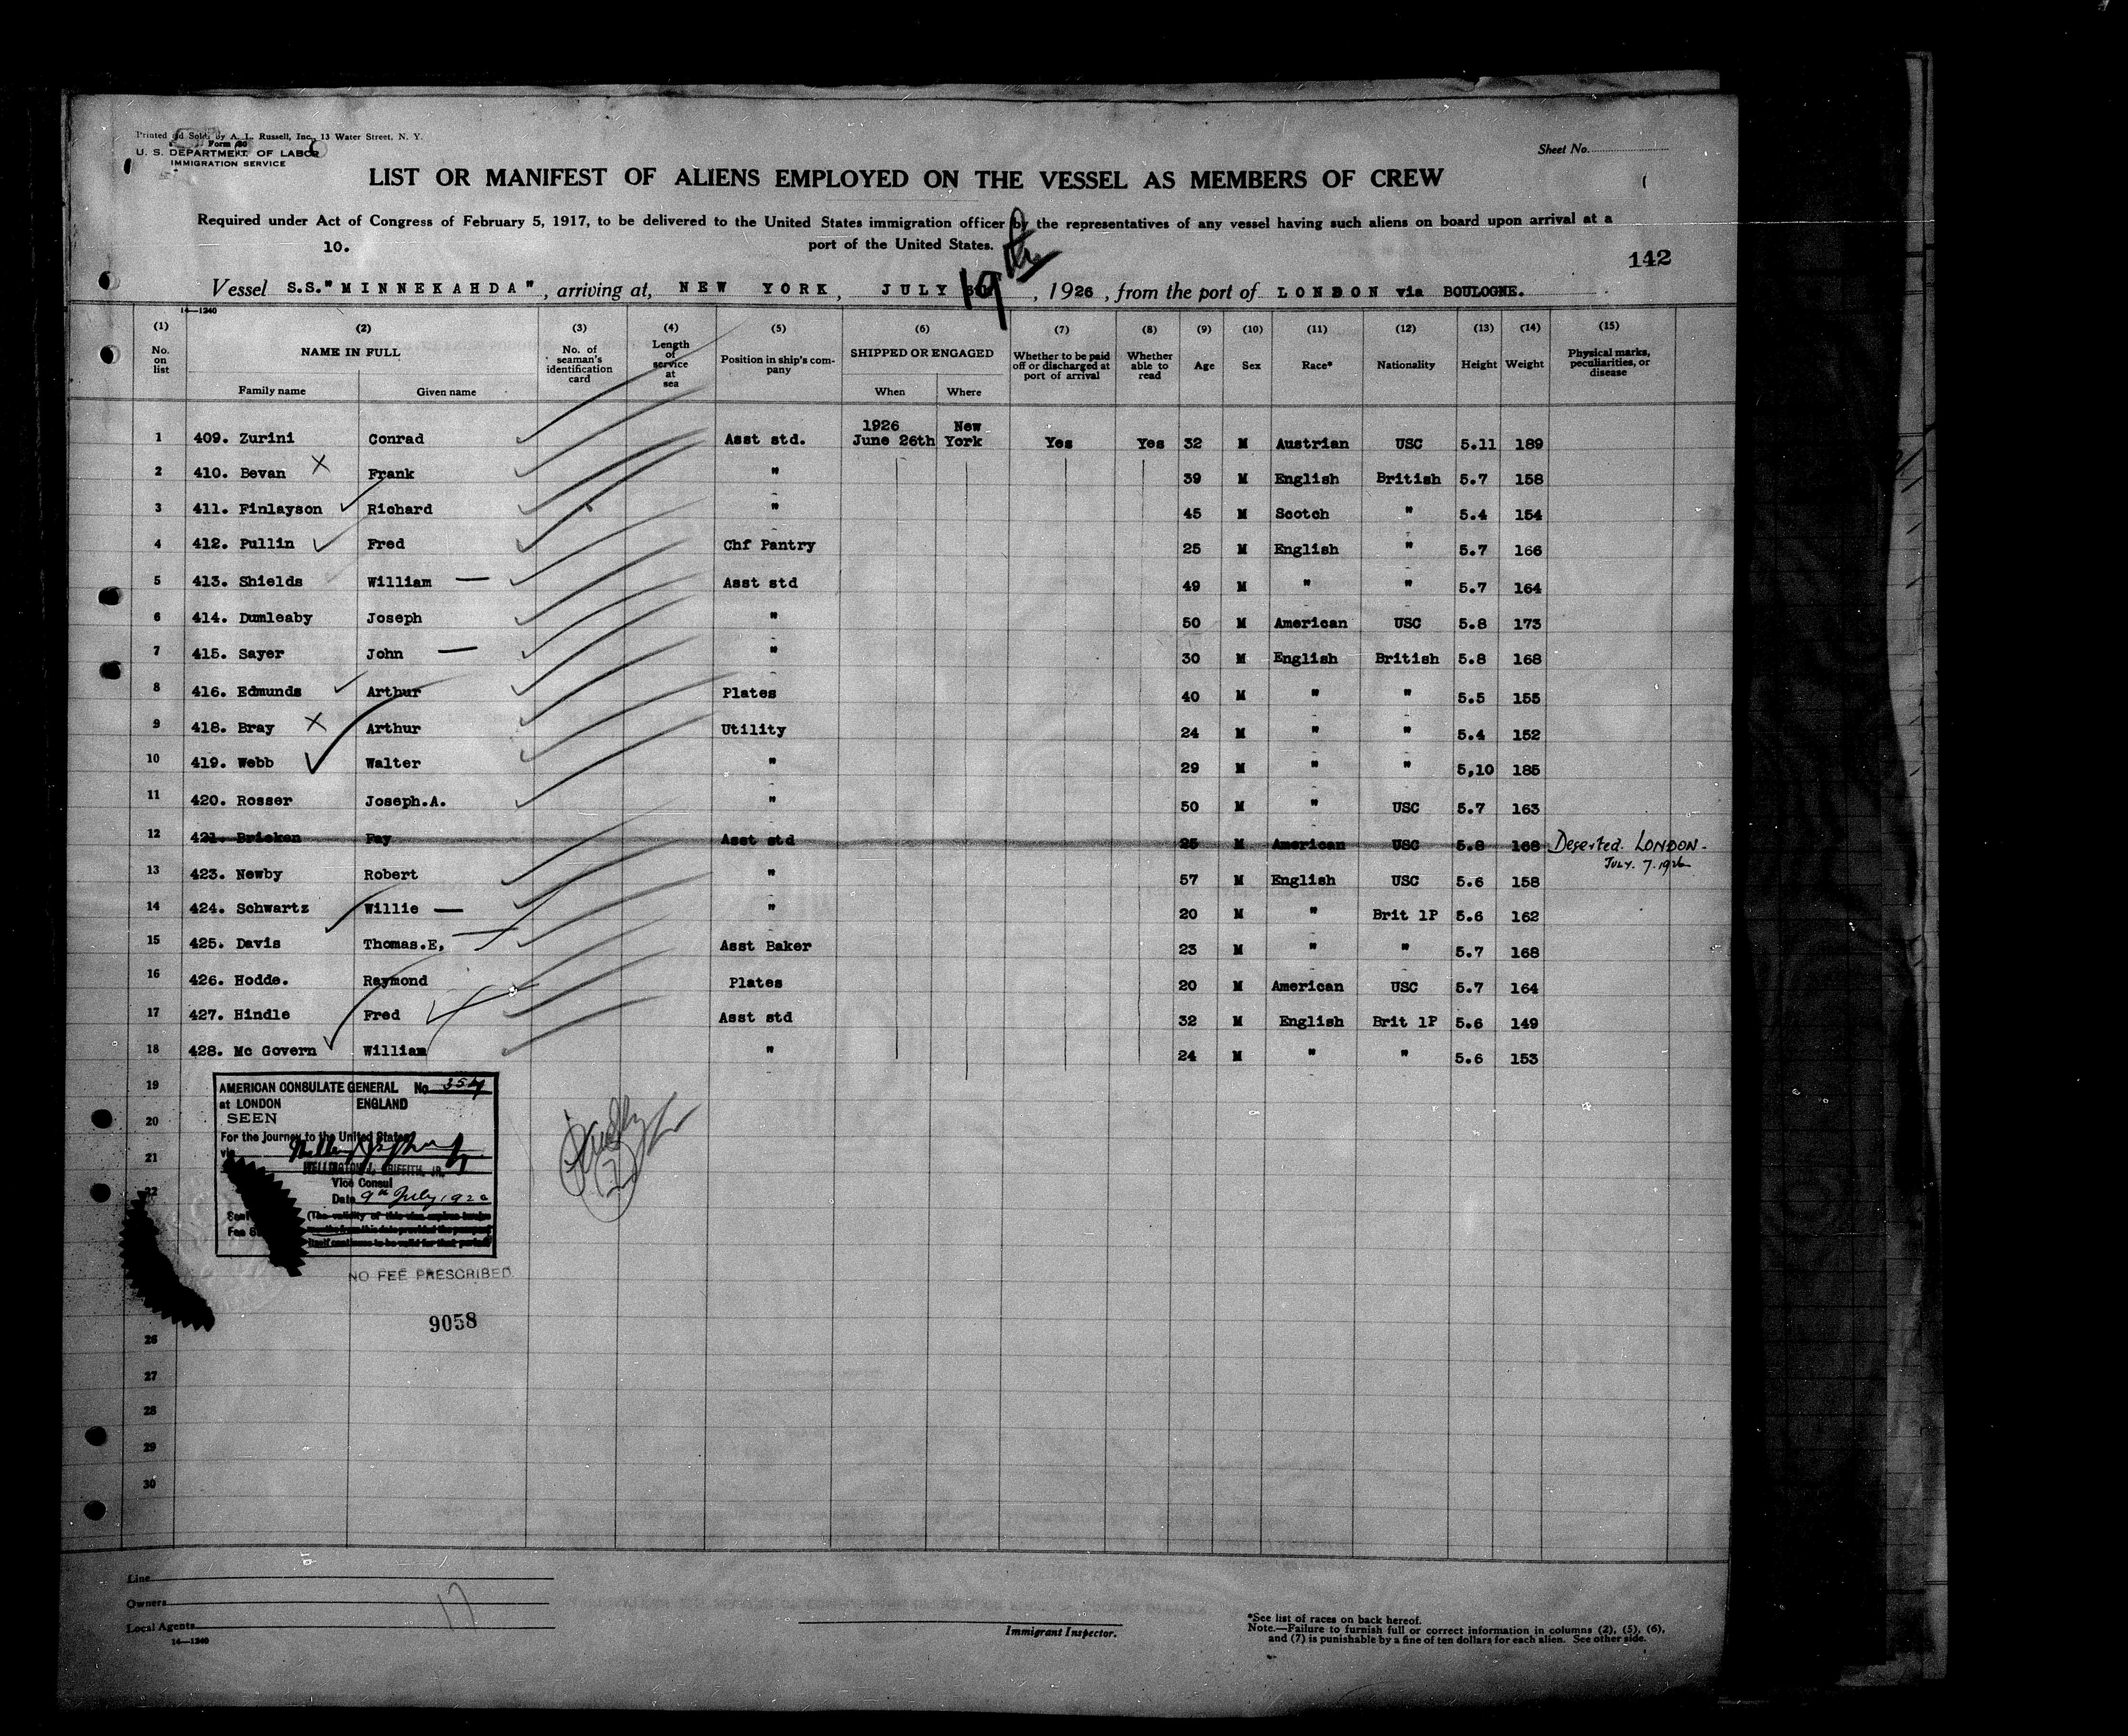 Printed and Sold by A. L. Russell, Inc., 13 Water Street, N. Y.
Form
U. S. DEPARTMENT OF LABOR
IMMIGRATION SERVICE
Sheet No.
LIST OR MANIFEST OF ALIENS EMPLOYED ON THE VESSEL AS MEMBERS OF CREW
Required under Act of Congress of February 5, 1917, to be delivered to the United States immigration officer by the representatives of any vessel having such aliens on board upon arrival at a
10. port of the United States.
142
Vessel S.S."MINNEKAHDA", arriving at, NEW YORK, JULY 19th, 1926, from the port of LONDON via BOULOGNE.
14—1240
(1) (2) (3) (4) (5) (6) (7) (8) (9) (10) (11) (12) (13) (14) (15)
No. on list NAME IN FULL Family name Given name No. of seaman's identification card Length of service at sea Position in ship's company SHIPPED OR ENGAGED When Where Whether to be paid off or discharged at port of arrival Whether able to read Age Sex Race* Nationality Height Weight Physical marks, peculiarities, or disease
1926 New
1 409. Zurini Conrad Asst std. June 26th York Yes Yes 32 M Austrian USC 5.11 189
2 410. Bevan X Frank " 39 M English British 5.7 158
3 411. Finlayson Richard " 45 M Scotch " 5.4 154
4 412. Pullin Fred Chf Pantry 25 M English " 5.7 166
5 413. Shields William — Asst std 49 M " " 5.7 164
6 414. Dumleaby Joseph " 50 M American USC 5.8 173
7 415. Sayer John — " 30 M English British 5.8 168
8 416. Edmunds Arthur Plates 40 M " " 5.5 155
9 418. Bray X Arthur Utility 24 M " " 5.4 152
10 419. Webb Walter " 29 M " " 5,10 185
11 420. Rosser Joseph.A. " 50 M " USC 5.7 163
12 421. Bricken Fay Asst std 25 M American USC 5.8 168 Deserted. LONDON-
JULY. 7. 1926
13 423. Newby Robert " 57 M English USC 5.6 158
14 424. Schwartz Willie — " 20 M " Brit 1P 5.6 162
15 425. Davis Thomas.E, Asst Baker 23 M " " 5.7 168
16 426. Hodde. Raymond Plates 20 M American USC 5.7 164
17 427. Hindle Fred Asst std 32 M English Brit 1P 5.6 149
18 428. Mc Govern William " 24 M " " 5.6 153
19
20
21
22
26
27
28
29
30
AMERICAN CONSULATE GENERAL No
at LONDON ENGLAND
SEEN
For the journey to the United States
via
WELLINGTON J. GRIFFITH, JR.
Vice Consul
Date 9th July, 1926
Seal (The validity of this visa expires twelve
Fee months from this date provided the passport
itself continues to be valid for that period)
NO FEE PRESCRIBED
9058
Line
Owners
Local Agents
14—1240
17
Immigrant Inspector.
*See list of races on back hereof.
Note.—Failure to furnish full or correct information in columns (2), (5), (6),
and (7) is punishable by a fine of ten dollars for each alien. See other side.